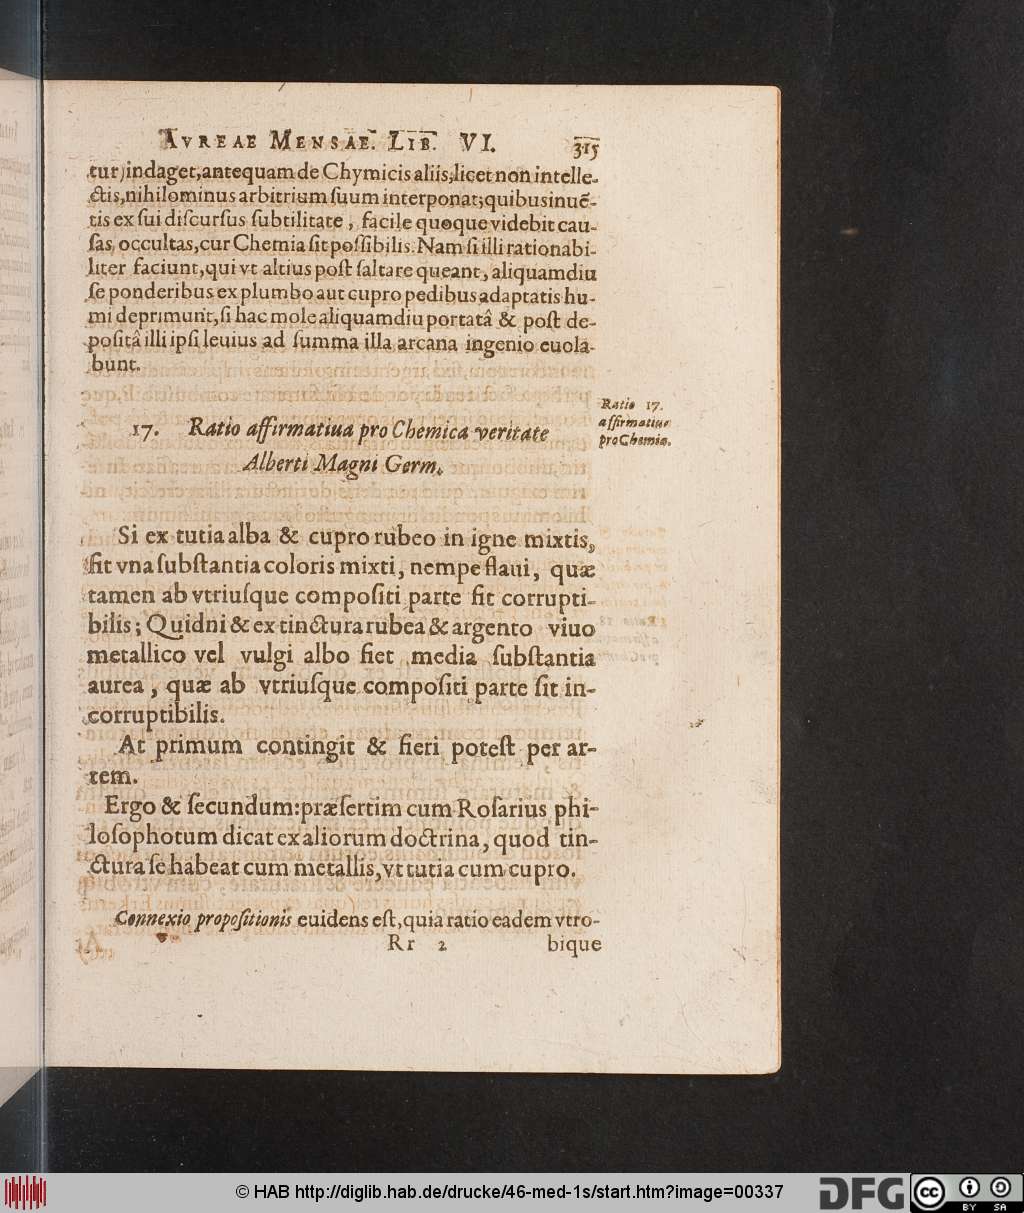 AVREAE MENSAE. LIB. VI. 315
tur, indaget, antequam de Chymicis aliis, licet non intelle-
ctis, nihilominus arbitrium ſuum interponat; quibus inuẽ-
tis ex ſui diſcurſus ſubtilitate, facile quoque videbit cau-
ſas occultas, cur Chemia ſit poſſibilis. Nam ſi illi rationabi-
liter faciunt, qui vt altius poſt ſaltare queant, aliquamdiu
ſe ponderibus ex plumbo aut cupro pedibus adaptatis hu-
mi deprimunt, ſi hac mole aliquamdiu portatâ & poſt de-
poſitâ illi ipſi leuius ad ſumma illa arcana ingenio euola-
bunt.
Ratio 17.
affirmatiua
pro Chemia.
17. Ratio affirmatiua pro Chemica veritate
Alberti Magni Germ.
Si ex tutia alba & cupro rubeo in igne mixtis,
fit vna ſubſtantia coloris mixti, nempe flaui, quæ
tamen ab vtriuſque compoſiti parte ſit corrupti-
bilis; Quidni & ex tinctura rubea & argento viuo
metallico vel vulgi albo fiet media ſubſtantia
aurea, quæ ab vtriuſque compoſiti parte ſit in-
corruptibilis.
At primum contingit & fieri poteſt per ar-
tem.
Ergo & ſecundum: præſertim cum Roſarius phi-
loſophotum dicat ex aliorum doctrina, quod tin-
ctura ſe habeat cum metallis, vt tutia cum cupro.
Connexio propoſitionis euidens eſt, quia ratio eadem vtro-
Rr 2 bique
© HAB http://diglib.hab.de/drucke/46-med-1s/start.htm?image=00337
DFG cc BY SA